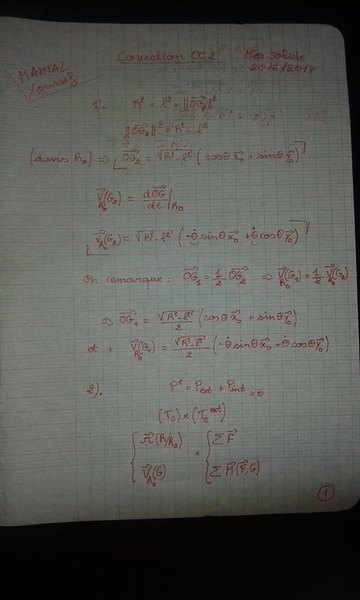 MAHTAL
Youssef
Correction CC2
Méca solide
2016/2017
1). R² = l² + ||OG₂||²
||OG₂||² = R² - l²
(dans R₀) ⇒ OG₂ = √R² - l² (cosθ x₀ + sinθ y₀)
V_R₀(G₂) = dOG/dt |R₀
V_R₀(G₂) = √R² - l² (-θ̇ sinθ x₀ + θ̇ cosθ y₀)
On remarque : OG₁ = 1/2 OG₂ ⇒ V_R₀(G₁) = 1/2 V_R₀(G₂)
⇒ OG₁ = √R² - l² / 2 (cosθ x₀ + sinθ y₀)
et : V_R₀(G₁) = √R² - l² / 2 (-θ̇ sinθ x₀ + θ̇ cosθ y₀)
2). Pᵗ = Pext + Pint = 0
(T_c) × (T_e^ext)
{ Ω(R/R₀) × { Σ F
{ V_R₀(G) { Σ M(F, G)
1